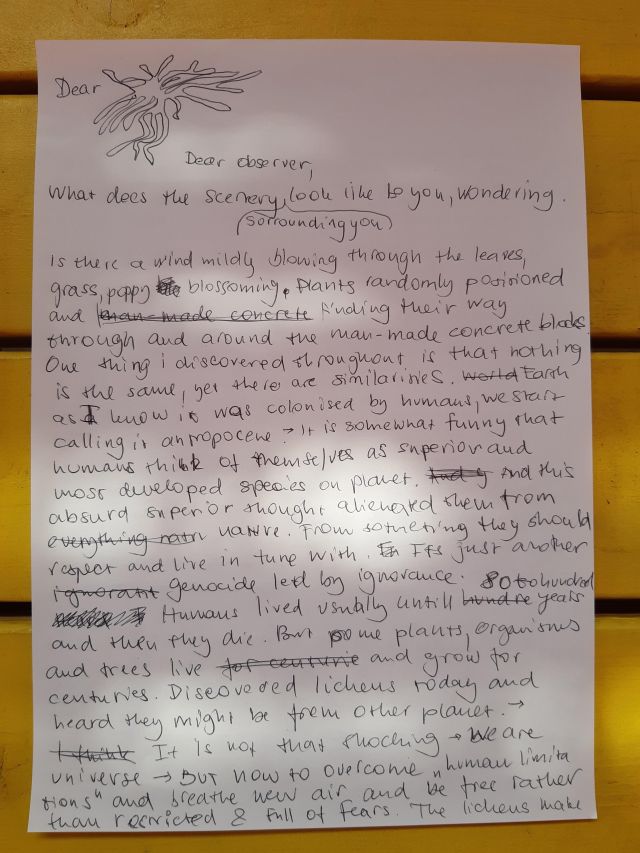 Dear
Dear observer,
What does the scenery, look like to you, wondering.
(Sorrounding you)
Is there a wind mildly blowing through the leaves,
grass, poppy blossoming. Plants randomly positioned
and man-made concrete finding their way
through and around the man-made concrete blocks.
One thing i discovered throughout is that nothing
is the same, yet there are similarities. world Earth
as I know it was colonised by humans, we start
calling it antropocene. → It is somewhat funny that
humans think of themselves as superior and
most developed species on planet. And y And this
absurd superior thought alienated them from
everything natu nature. From something they should
respect and live in tune with. It's just another
ignorant genocide led by ignorance. 80 to hundred
Humans lived usually untill hundre years
and then they die. But some plants, organisms
and trees live for centurie and grow for
centuries. Discovered lichens today and
heard they might be from other planet. →
I think It is not that shocking → We are
universe → But how to overcome "human limita
tions" and breathe new air and be free rather
than restricted & full of fears. The lichens make